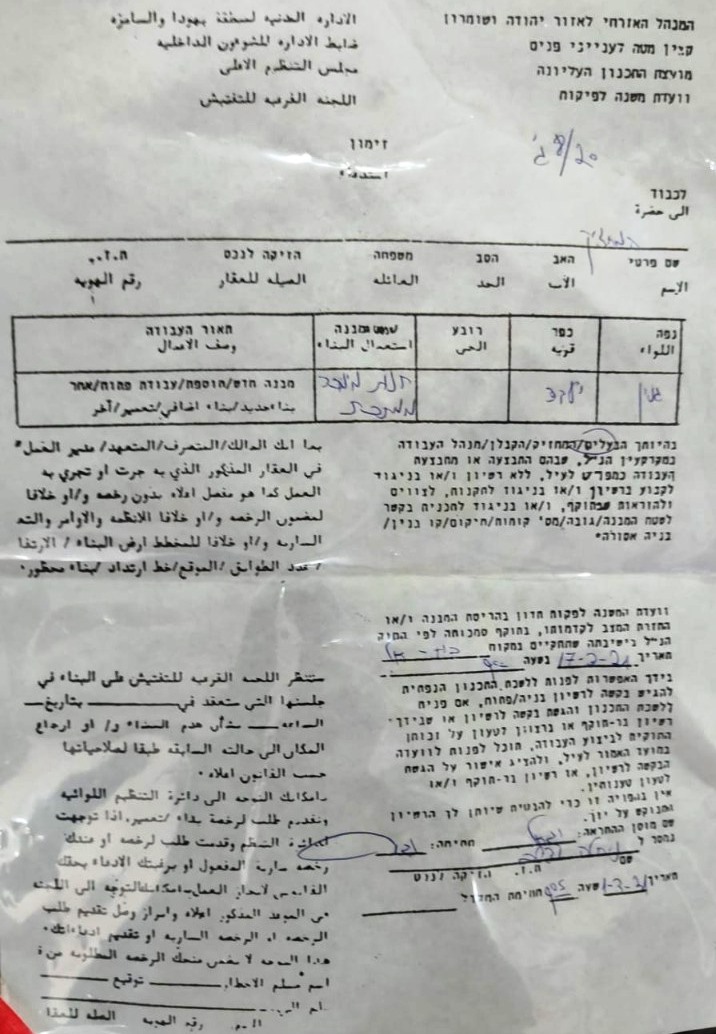 המנהל האזרחי לאזור יהודה ושומרון
קצין מטה לענייני פנים
מועצת התכנון העליונה
וועדת משנה לפיקוח
الاداره المدنيه لمنطقة يهودا والسامره
ضابط الاداره للشوءون الداخليه
مجلس التنظيم الاعلى
اللجنه الفرعيه للتفتيش
זימון
استدعاء
8/20
לכבוד
الى حضرة
המחזיק
שם פרטי האב הסב משפחה הזיקה לנכס ת.ז.
الاسم الأب الجد العائله الصيله للعقار رقم الهويه
נפה כפר רובע שמוש המבנה תאור העבודה
اللواء قريه الحي استعمال البناء وصف الاعمال
ג'נין יעבד
מבנה חדש/תוספת/עבודת פתוח/אחר
بناء جديد/بناء اضافي/تعمير/آخر
בהיותך הבעלים/המחזיק/הקבלן/מנהל העבודה
במקרקעין הנ"ל, שבהם התבצעה או מתבצעת
העבודה כמפורט לעיל, ללא רשיון ו/או בניגוד
לקבוע ברשיון ו/או בניגוד לתקנות, לצווים
ולהוראות שבתוקף, ו/או בניגוד לתכנית בקשר
לשטח המבנה/גובה/מס' קומות/מיקום/קו בנין/
בניה אסורה.
بما انك المالك/المتصرف/المتعهد/مدير العمل
في العقار المذكور الذي به جرت او تجري به
العمل كما هو مفصل اعلاه بدون رخصه و/او خلافا
لمضمون الرخصه و/او خلافا للانظمه والاوامر والتعـ
الساريه و/او خلافا للمخطط ارض البناء / الارتفا
/عدد الطوابق/الموقع/خط ارتداد/بناء محظور.
וועדת המשנה לפקוח תדון בהריסת המבנה ו/או
החזרת המצב לקדמותו, בתוקף סמכותה לפי החוק
הנ"ל בישיבתה שתתקיים במקום בית-אל
תאריך 17-2-21 בשעה
בידך האפשרות לפנות ללשכת התכנון הנפתית
להגיש בקשה לרשיון בניה/פתוח, אם פנית
ללשכת התכנון והגשת בקשה לרשיון או שבידך
רשיון בר-תוקף או ברצונך לטעון על זכותך
החוקית לביצוע העבודה, תוכל לפנות לוועדה
במועד האמור לעיל, ולהציג אישור על הגשת
הבקשה לרשיון, או רשיון בר-תוקף ו/או
לטעון טענותיך.
אין בהפניה זו כדי להבטיח שיותן לך הרשיון
המבוקש על ידך.
שם מוסר ההתראה: חתימה:
נמסר ל
שם ת.ז. הזיקה לנכס
תאריך בשעה חתימת המקבל
ستنظر اللجنه الفرعيه للتفتيش على البناء في
جلستها التي ستعقد في بتاريخ
الساعه بشأن هدم البناء و/ او ارجاع
المكان الى حالته السابقه طبقا لصلاحياتها
حسب القانون اعلاه.
بامكانك التوجه الى دائرة التنظيم اللوائيه
وتقديم طلب لرخصة بناء /تعمير،اذا توجهت
لدائرة التنظيم وقدمت طلب لرخصه او عندك
رخصه سارية المفعول او برغبتك الادعاء بحقك
القانوني لانجاز العمل،بامكانك التوجه الى اللجنه
في الموعد المذكور اعلاه وابراز وصل تقديم طلب
الرخصه او الرخصه الساريه او تقديم ادعاءاتك.
هذا التوجه لا يضمن منحك الرخصه المطلوبه من
اسم مسلم الاخطار توقيع
رقم الهويه الصله للعقا